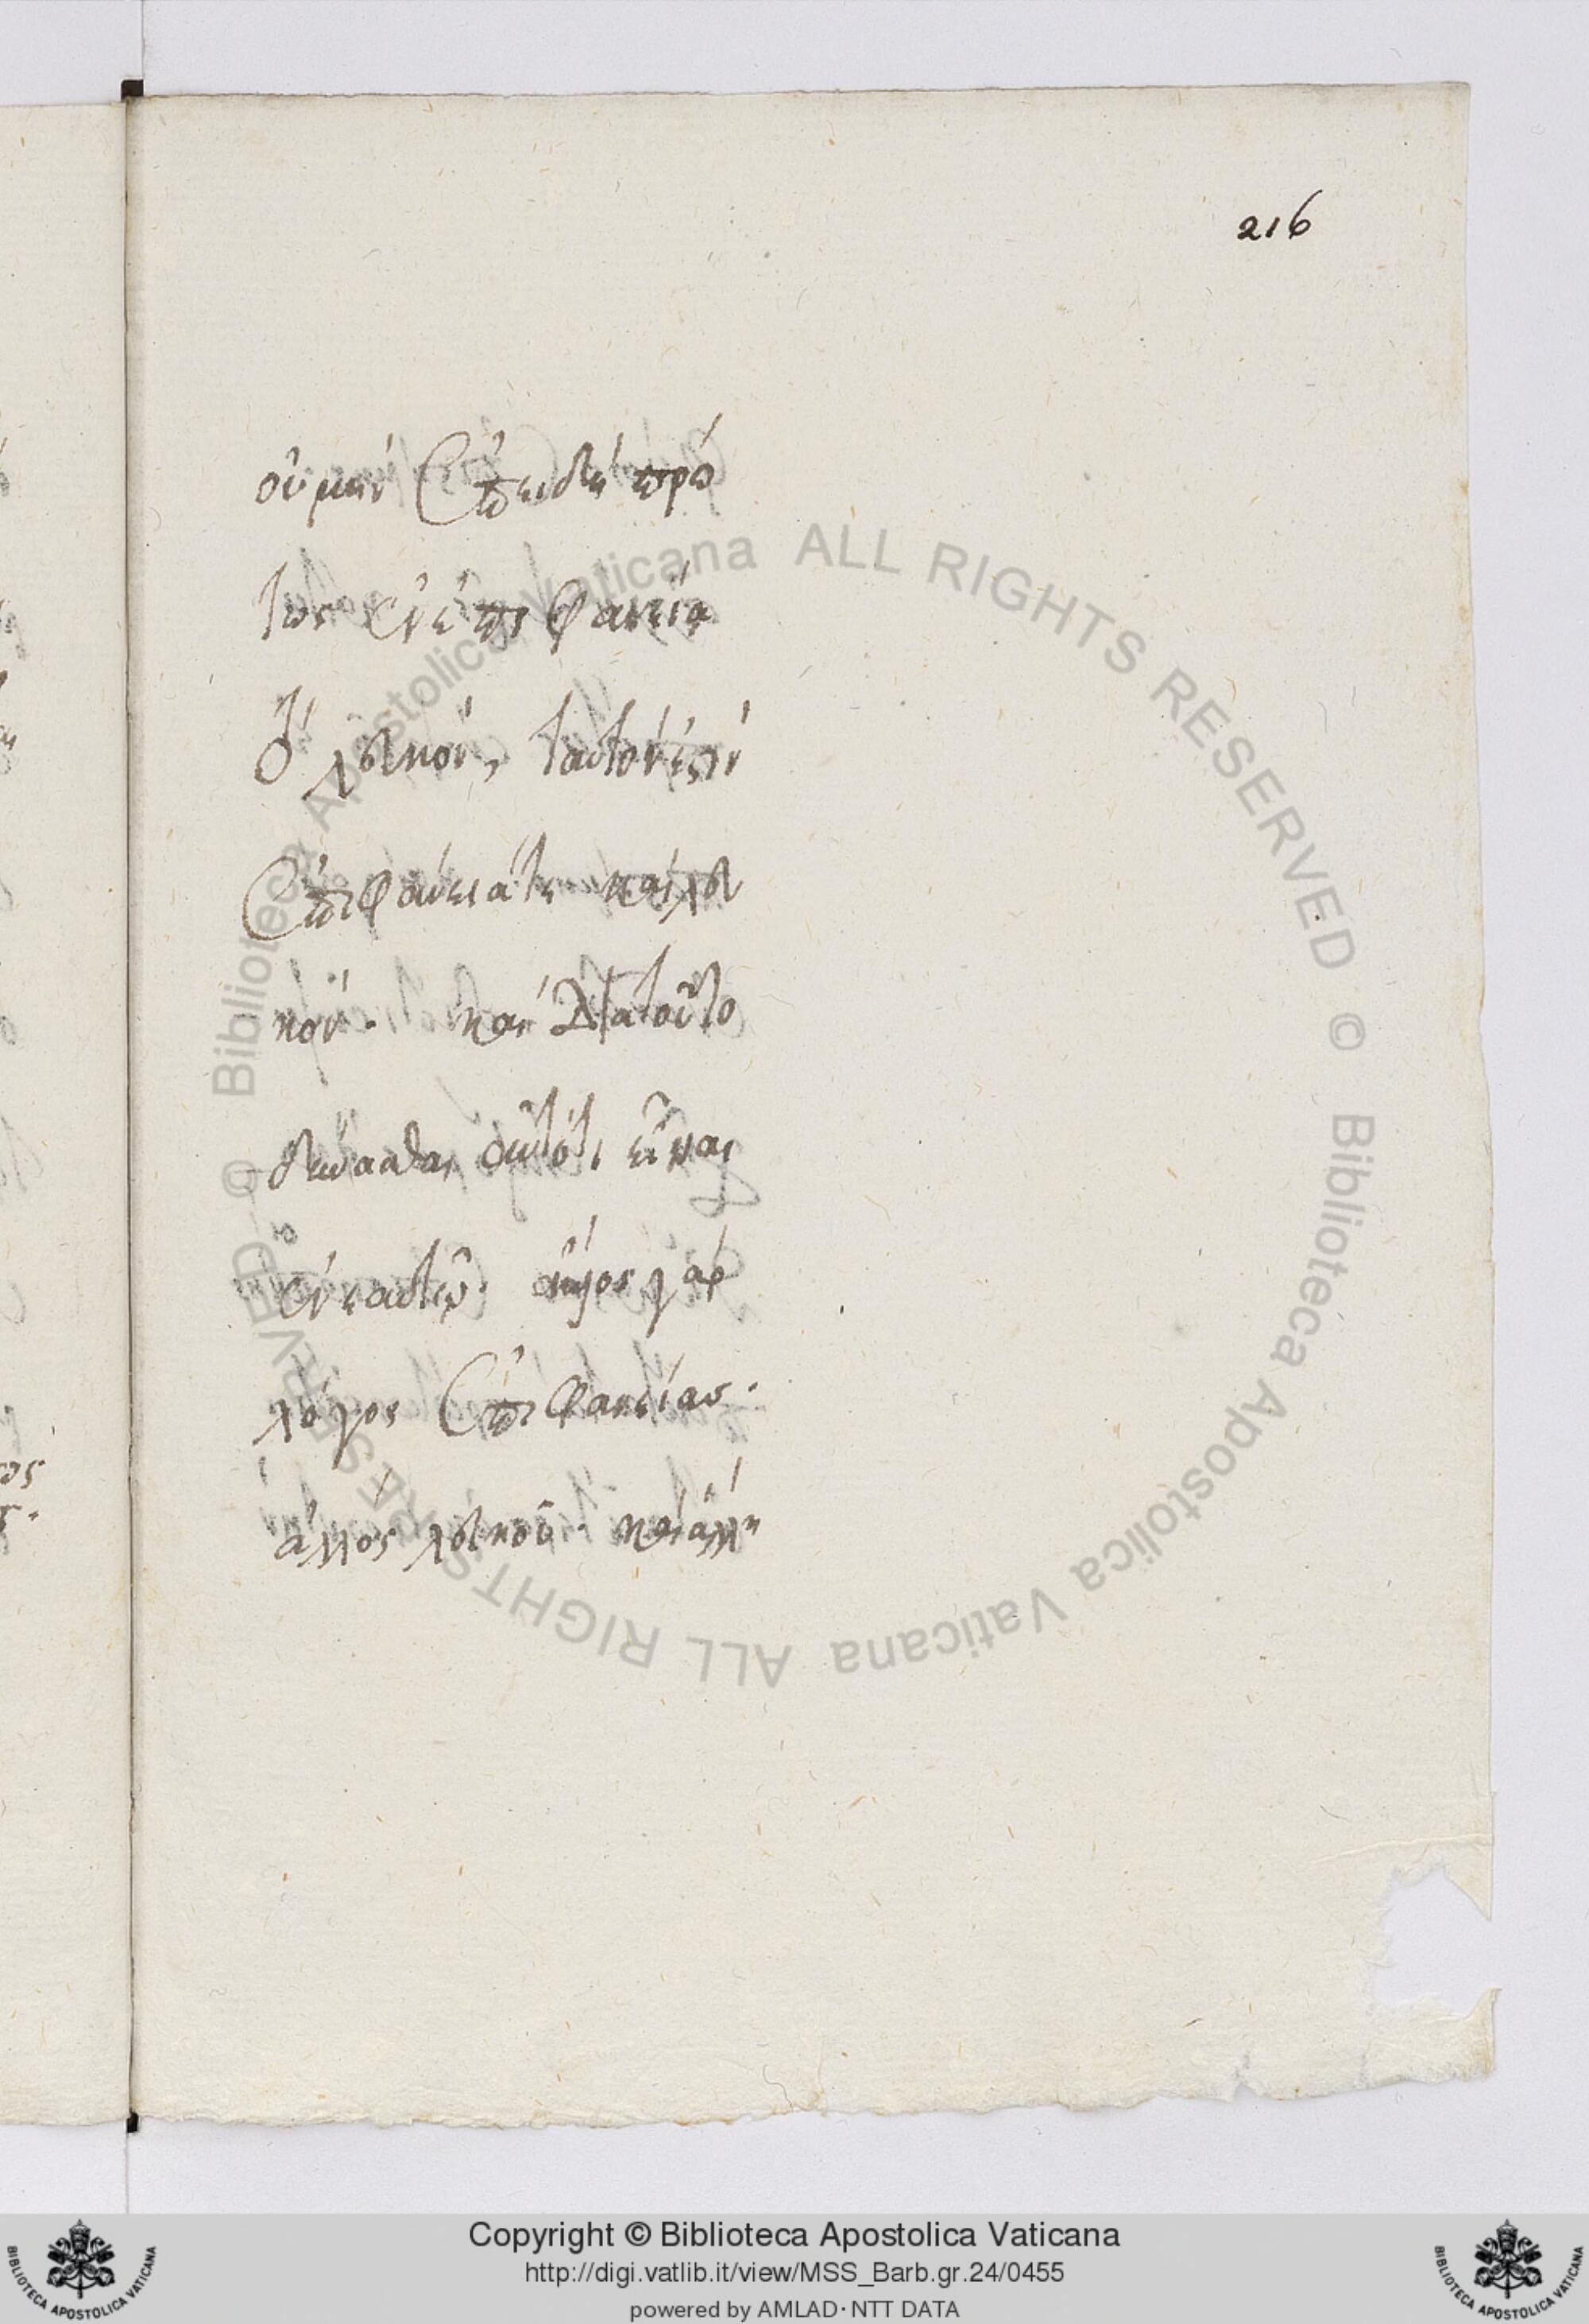 216
οὐ μὴν ἐπειδὴ πρώ
τως ἐν ἐπιφανεία
τὸ λευκόν, ταυτόν ἐστιν
ἐπιφάνειά τε καὶ λευ
κόν. καὶ διατοῦτο
εἶναι
ἐν ἑαυτῷ. ἄλλος γὰρ
λόγος ἐπιφανείας.
ἄλλος λευκοῦ. καὶ ἄλλη
Biblioteca Apostolica Vaticana ALL RIGHTS RESERVED ©
Biblioteca Apostolica Vaticana ALL RIGHTS RESERVED ©
Copyright © Biblioteca Apostolica Vaticana
http://digi.vatlib.it/view/MSS_Barb.gr.24/0455
powered by AMLAD·NTT DATA
BIBLIOTECA APOSTOLICA VATICANA
BIBLIOTECA APOSTOLICA VATICANA